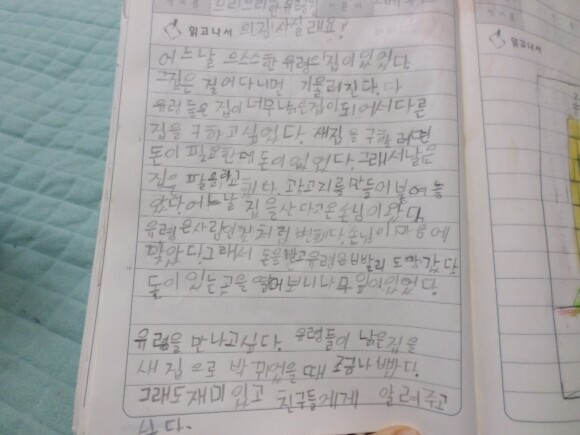 읽고나서 의집사실래요!
어느날 으스스한 유령의집이 있었다.
그집은 걸어다니면 기울러진다.다
유령들은 집이 너무낡은집이되어서다른
집을 구하고싶었다. 새집을 구할려면
돈이 필요한데 돈이 없었다.그래서낡은
집을 팔려고 했다. 광고지를만들어 붙여놓
았다.어느날 집을산다고온손님이왔다.
유령은사람인것처럼변했다.손님이 마음에
맞았다.그래서 돈을받고유령은빨리 도망갔다.
돌이 있는곳을 열어보니나무잎이있었다.
유령을 만나고싶다. 유령들이 낡은집을
새집으로 바뀌었을때 조금나빴다.
그래도재미있고 친구들에게 알려주고
싶다.
읽고나서